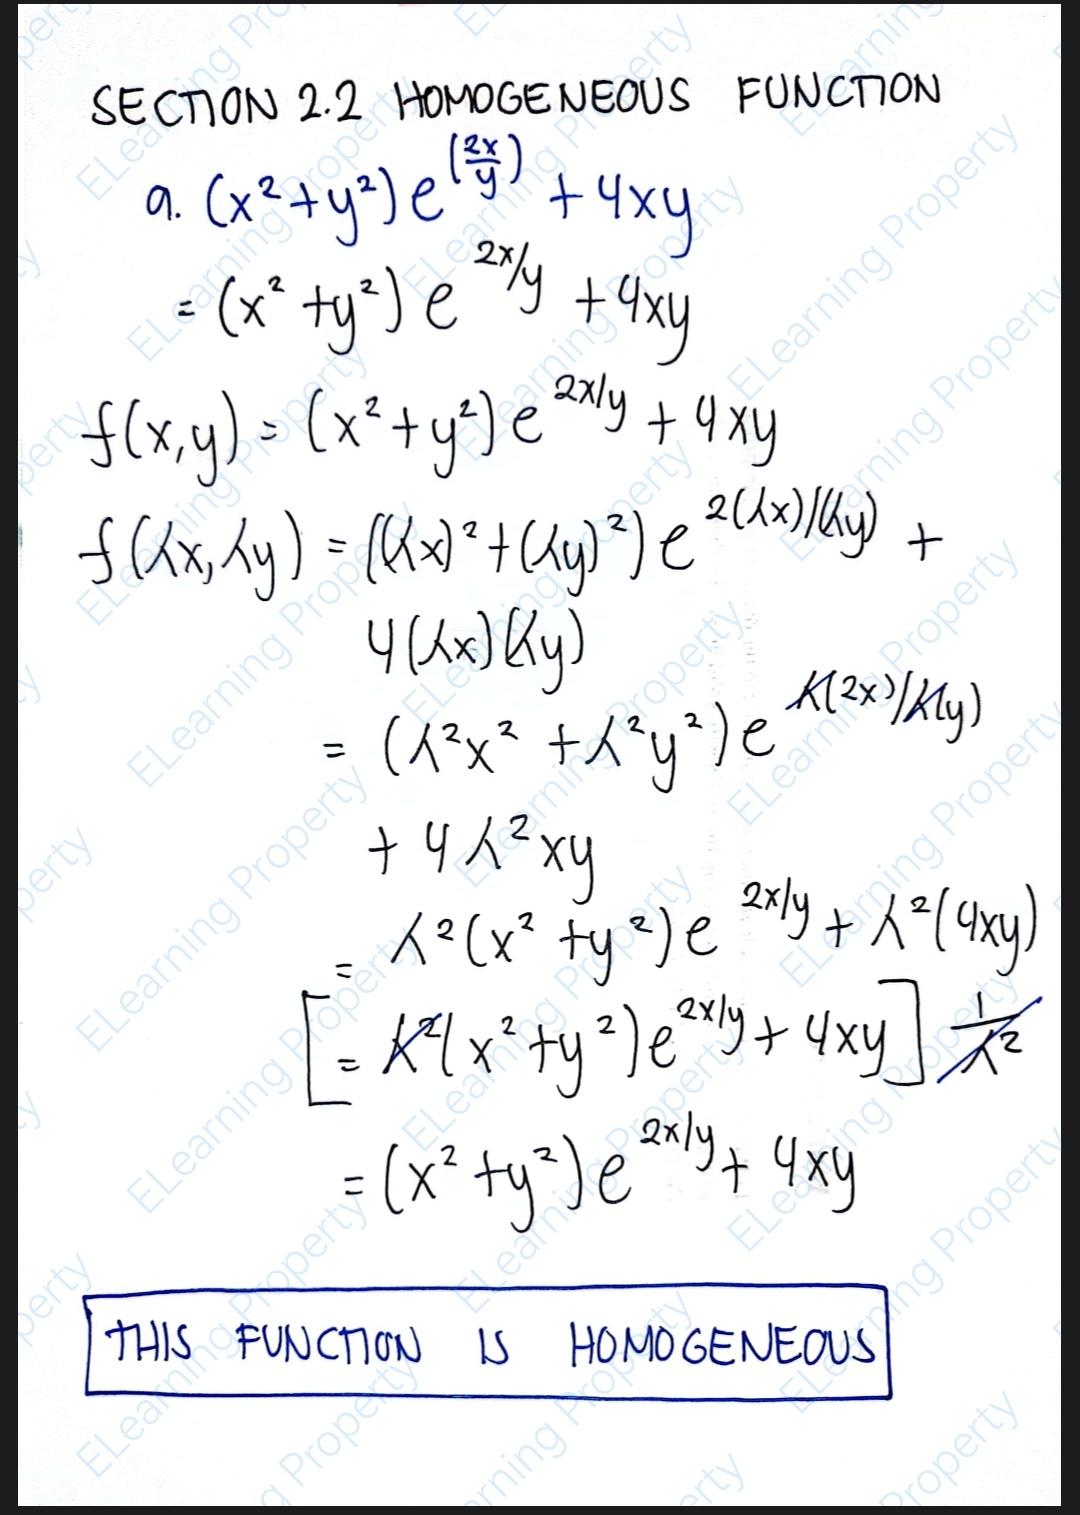 SECTION 2.2 HOMOGENEOUS FUNCTION
a. (x²+y²)e^(2x/y) + 4xy
= (x² +y²) e^2x/y + 4xy
f(x,y) = (x²+y²)e^2x/y + 4xy
f(λx,λy) = ((λx)²+(λy)²)e^2(λx)/(λy) +
4(λx)(λy)
= (λ²x² +λ²y²)e^λ(2x)/λ(y)
+ 4λ²xy
= λ²(x² +y²)e^2x/y + λ²(4xy)
[= λ²(x²+y²)e^2x/y + 4xy] 1/λ²
= (x² +y²)e^2x/y + 4xy
THIS FUNCTION IS HOMOGENEOUS
ELearning Property